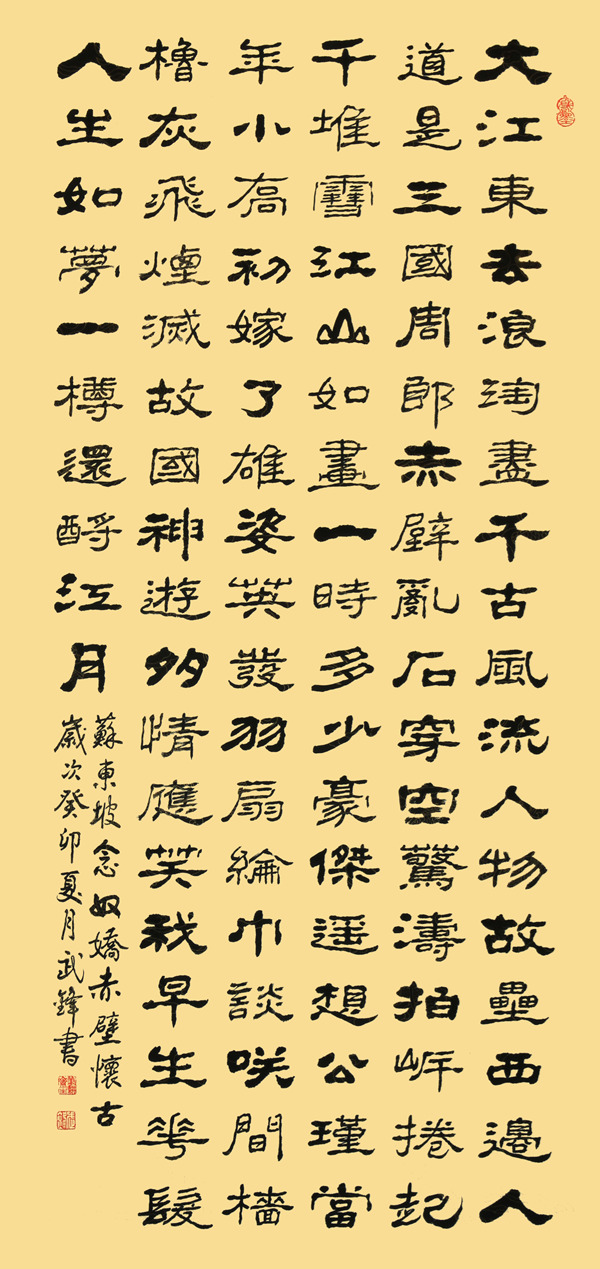 大江東去浪淘盡千古風流人物故壘西邊人
道是三國周郎赤壁亂石穿空驚濤拍岸捲起
千堆雪江山如畫一時多少豪傑遥想公瑾當
年小喬初嫁了雄姿英發羽扇綸巾談咲間檣
櫓灰飛煙滅故國神遊多情應笑我早生華髮
人生如夢一樽還酹江月
蘇東坡念奴嬌赤壁懷古
歲次癸卯夏月武鋒書